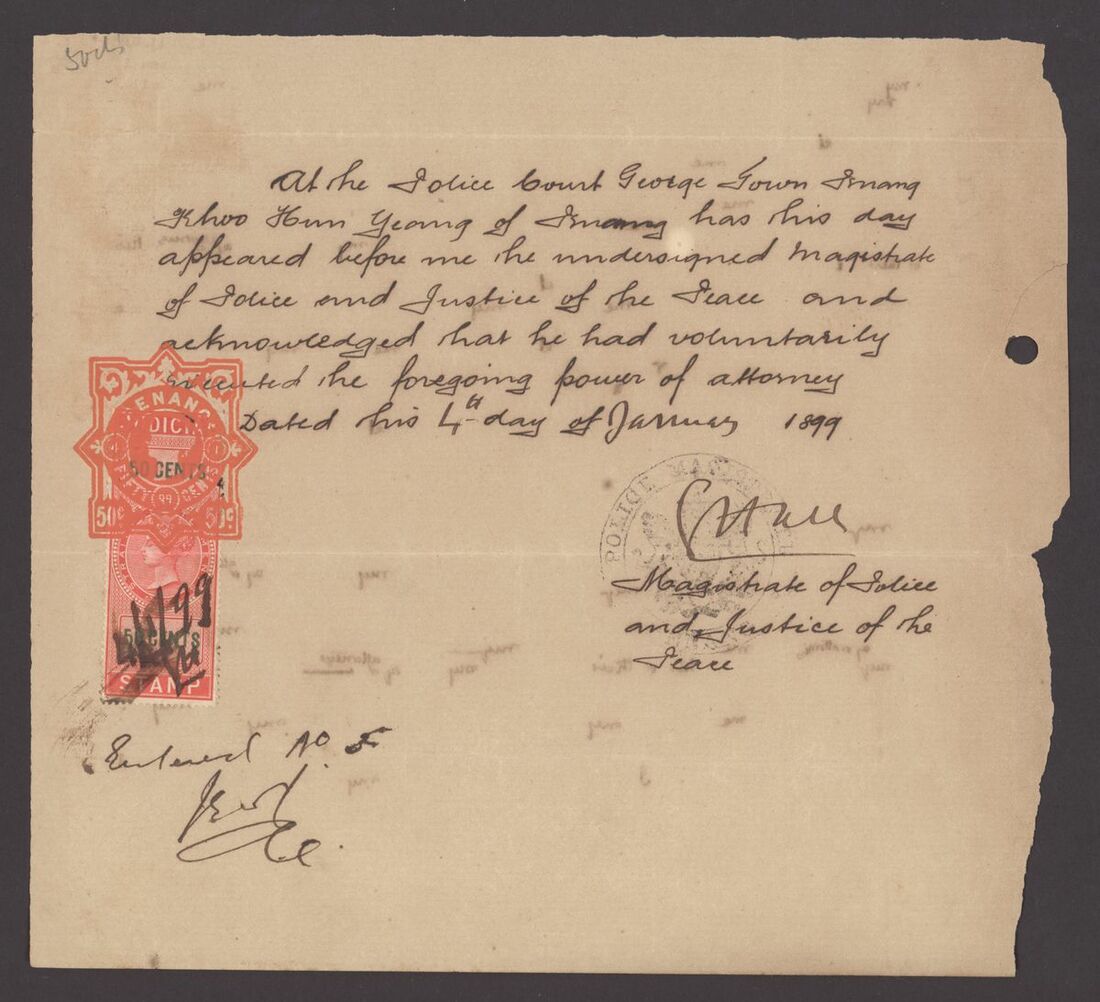 50 cts
At the Police Court George Town Penang
Khoo Hun Yeang of Penang has this day
appeared before me the undersigned Magistrate
of Police and Justice of the Peace and
acknowledged that he had voluntarily
executed the foregoing power of attorney
Dated this 4th day of January 1899
PENANG
JUDICIAL
50 CENTS
FIFTY CENTS
99
50c 50c
POLICE MAGISTRATE
Magistrate of Police
and Justice of the
Peace
4/1/99
50 CENTS
STAMP
Entered No 5